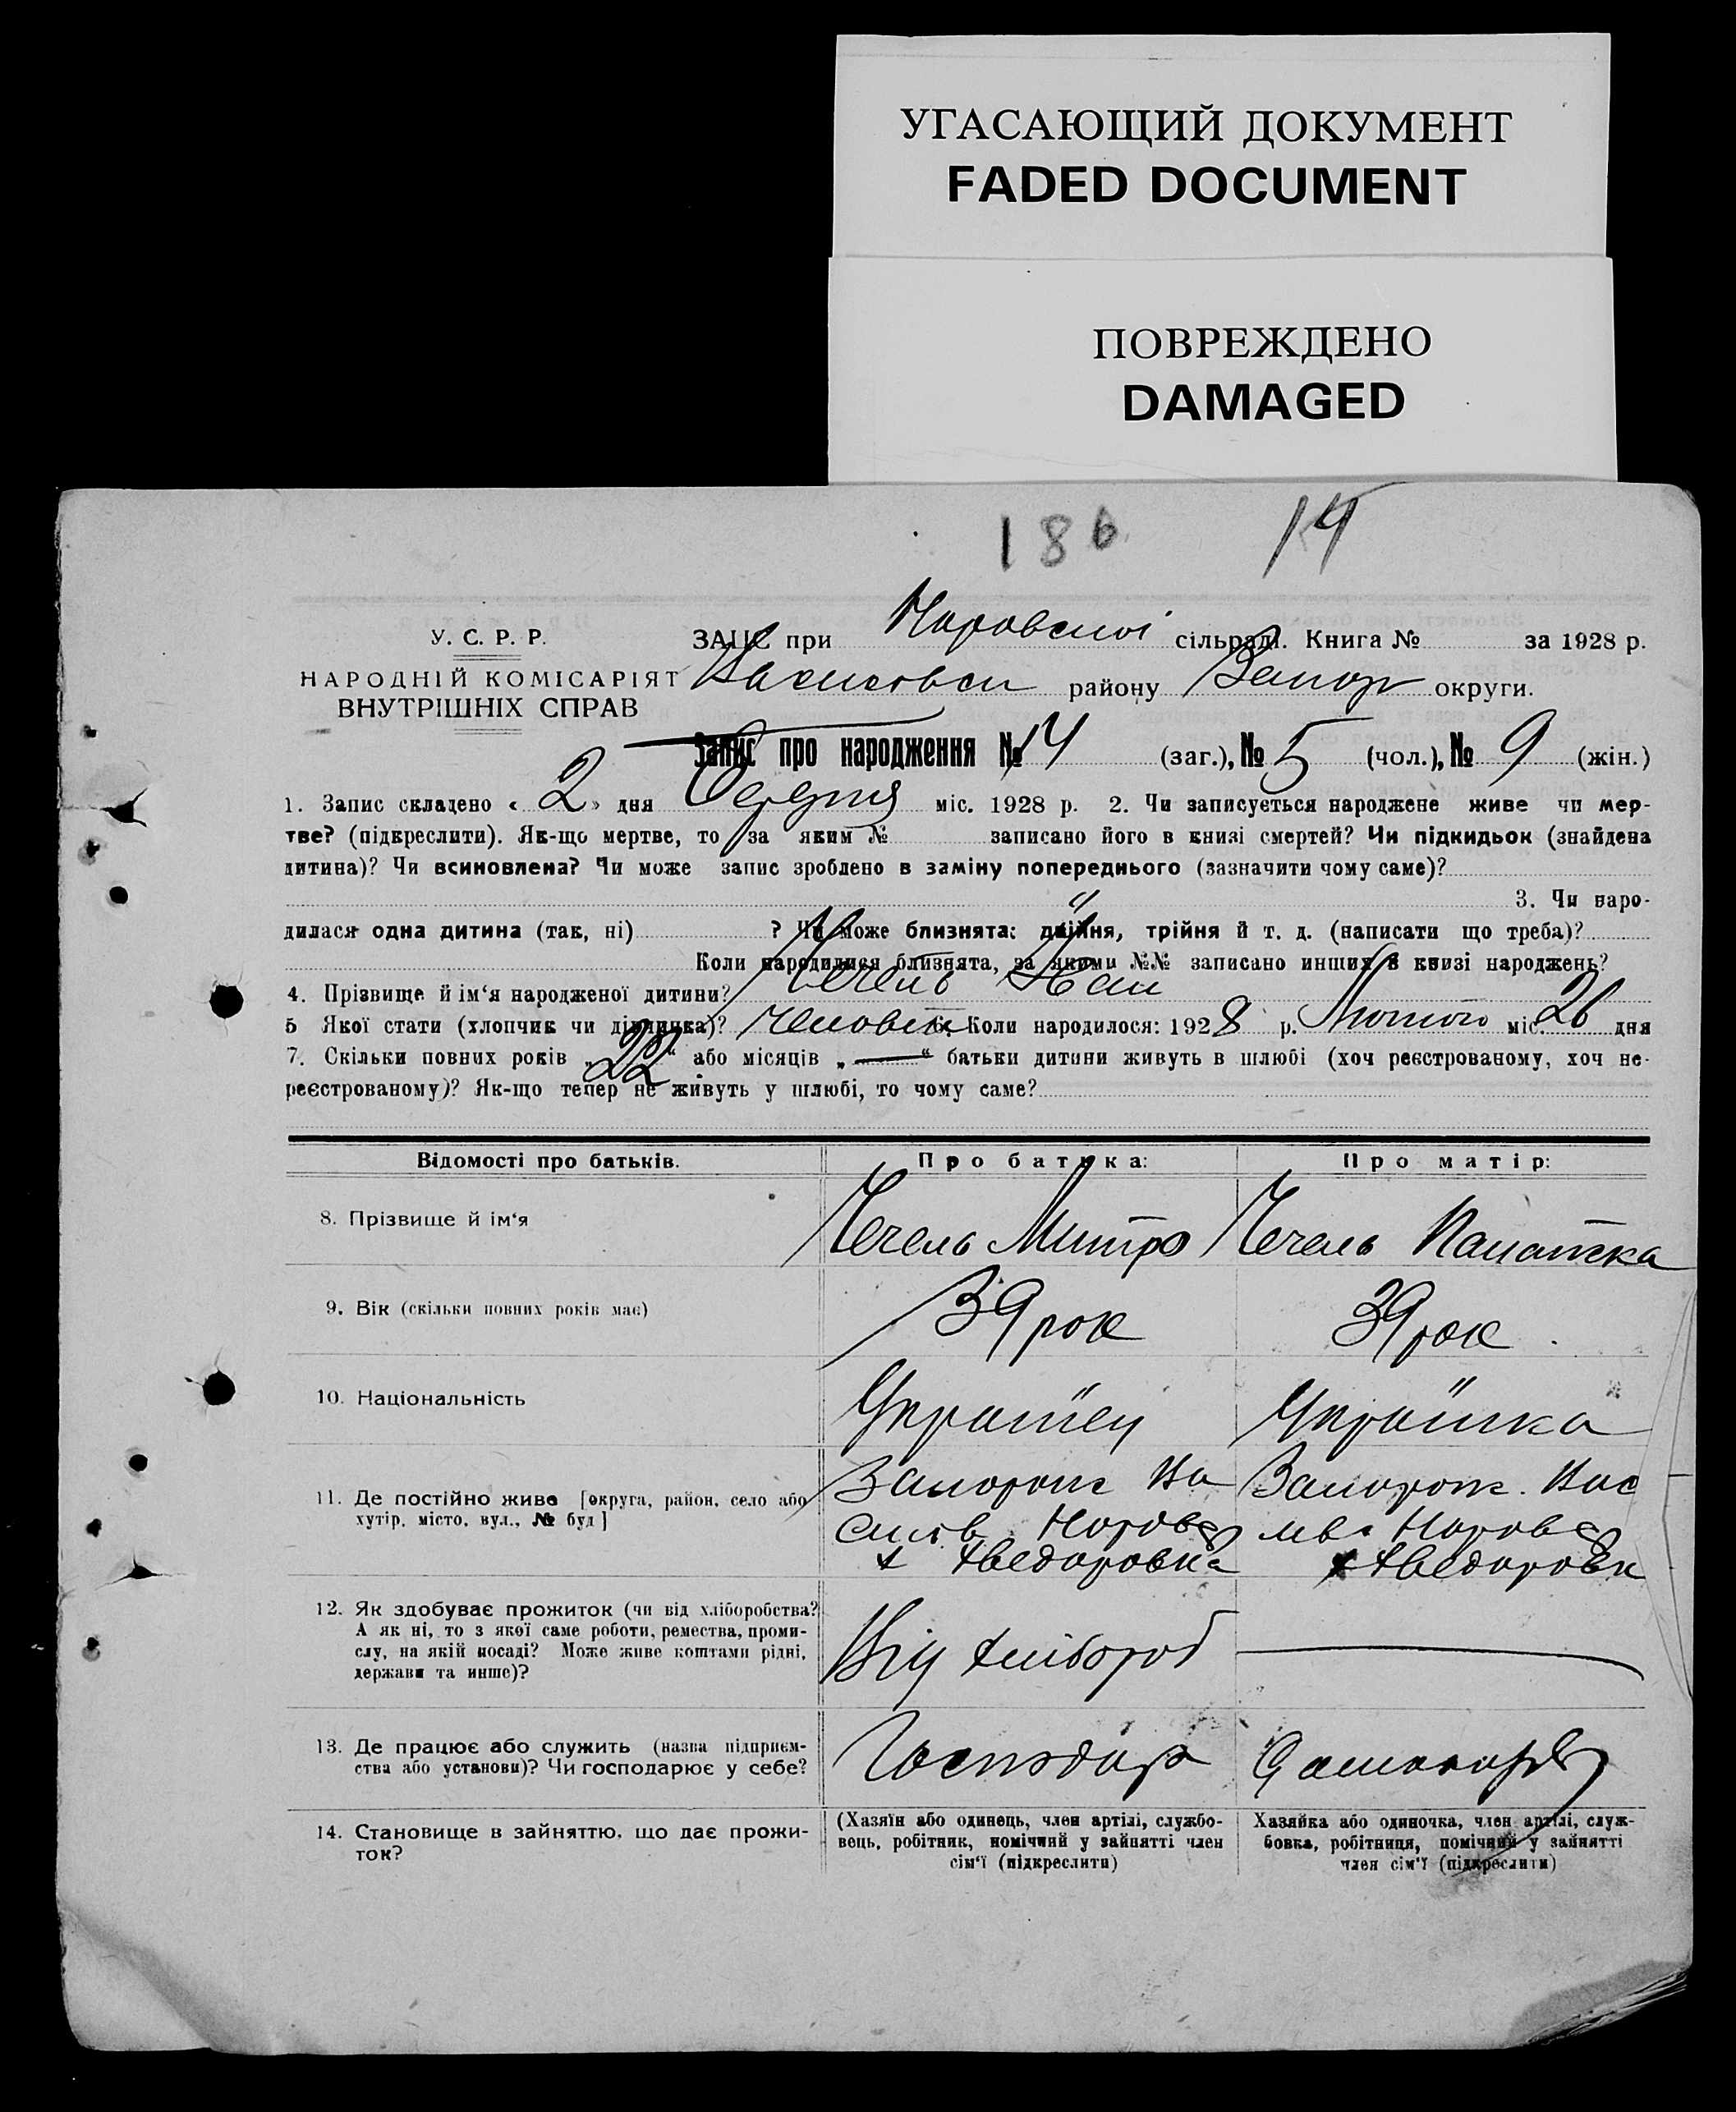 УГАСАЮЩИЙ ДОКУМЕНТ
FADED DOCUMENT
ПОВРЕЖДЕНО
DAMAGED
186 14
У. С. Р. Р.
НАРОДНІЙ КОМІСАРІЯТ
ВНУТРІШНІХ СПРАВ
ЗАЦС при сільраді. Книга № за 1928 р.
району Запор округи.
Запис про народження № 14 (заг.), № 5 (чол.), № 9 (жін.)
1. Запис складено « 2 » дня Серпня міс. 1928 р. 2. Чи записується народжене живе чи мер-
тве? (підкреслити). Як-що мертве, то за яким № записано його в книзі смертей? Чи підкидьок (знайдена
дитина)? Чи всиновлена? Чи може запис зроблено в заміну попереднього (зазначити чому саме)?
3. Чи наро-
дилася одна дитина (так, ні) ? Чи може близнята: двійня, трійня й т. д. (написати що треба)?
Коли народилися близнята, за якими №№ записано инших в книзі народжень?
4. Прізвище й ім'я народженої дитини? Чечель
5 Якої стати (хлопчик чи дівчинка)? 6. Коли народилося: 1928 р. Лютого міс. 26 дня
7. Скільки повних років „ 22 “ або місяців „ — “ батьки дитини живуть в шлюбі (хоч реєстрованому, хоч не-
реєстрованому)? Як-що тепер не живуть у шлюбі, то чому саме?
Відомості про батьків. Про батька: Про матір:
8. Прізвище й ім'я Чечель Митро Чечель
9. Вік (скільки повних років має) 39 рок 39 рок
10. Національність Українец Українка
11. Де постійно живе [округа, район, село або
хутір, місто, вул., № буд]
Запорож Ва Запорож. Вас
х Хведоровка х Хведоровк
12. Як здобуває прожиток (чи від хліборобства?
А як ні, то з якої саме роботи, ремества, проми-
слу, на якій посаді? Може живе коштами рідні,
держави та инше)?
Від хлібороб —
13. Де працює або служить (назва підприєм-
ства або установи)? Чи господарює у себе?
Господар
14. Становище в зайняттю, що дає прожи-
ток?
(Хазяїн або одинець, член артілі, службо-
вець, робітник, помічний у зайнятті член
сім'ї (підкреслити)
Хазяйка або одиночка, член артілі, служ-
бовка, робітниця, помічний у зайнятті
член сім'ї (підкреслити)